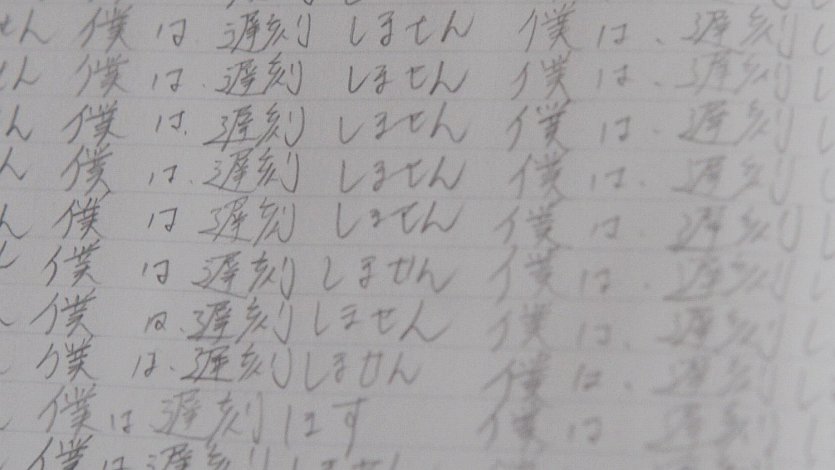 せん 僕は、遅刻しません 僕は、遅刻し
せん 僕は、遅刻しません 僕は、遅刻し
ん 僕は、遅刻しません 僕は、遅刻し
ん 僕は、遅刻しません 僕は、遅刻し
ん 僕は遅刻しません 僕は、遅刻し
僕は遅刻しません 僕は、遅刻し
僕は、遅刻しません 僕は、遅刻し
僕は、遅刻しません 僕は、遅刻し
僕は遅刻します 僕は、遅刻
僕は遅刻しません